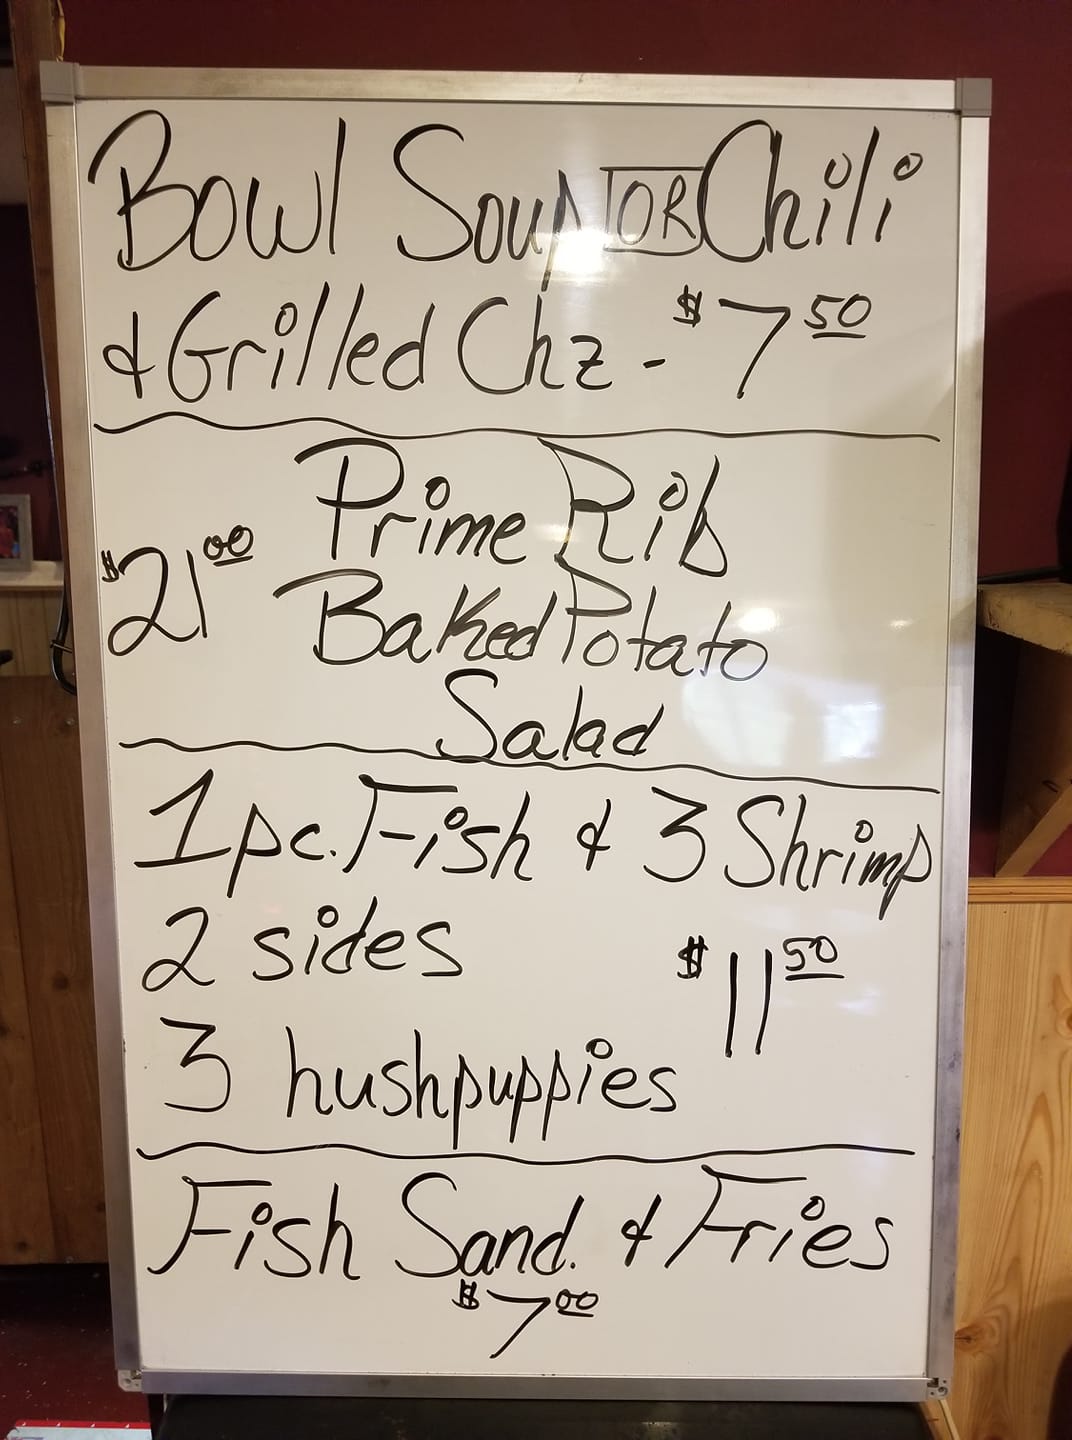 Bowl Soup OR Chili
& Grilled Chz - $7.50
Prime Rib
$21.00
Baked Potato
Salad
1 pc. Fish & 3 Shrimp
2 sides
$11.50
3 hushpuppies
Fish Sand. & Fries
$7.00